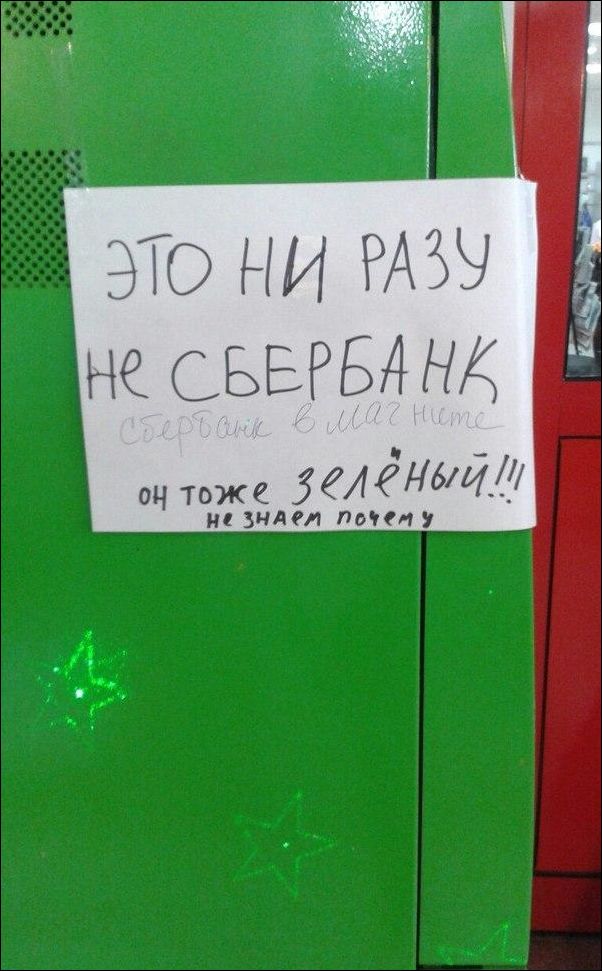 ЭТО НИ РАЗУ
не СБЕРБАНК
сбербанк в магните
он тоже зелёный!!!
не знаем почему